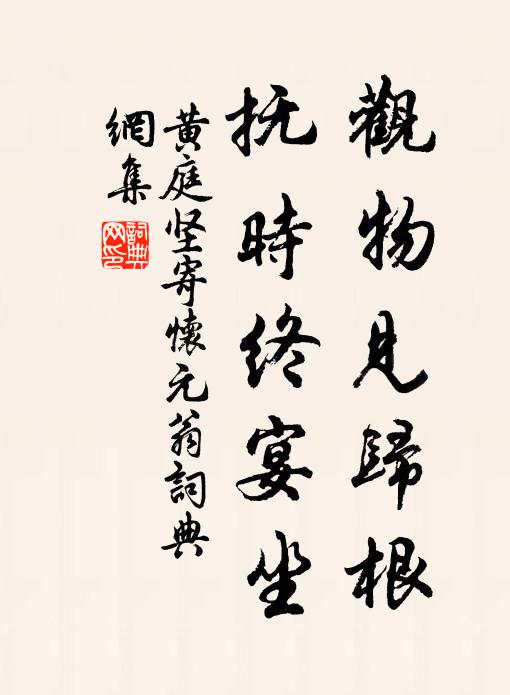 觀物見歸根
抚時終宴坐
黄庭坚寄懷元翁詞典
網集
詞典
网印